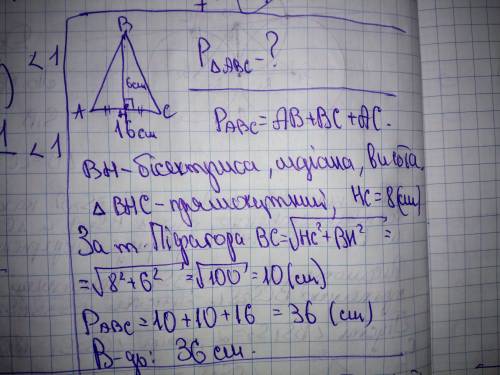 < 1
B
P△ABC - ?
6см
A H C
16 см
PABC = AB + BC + AC.
1
< 1
BH - бісектриса, медіана, висота
△ BHC - прямокутний, HC = 8 (см)
За т. Піфагора BC = √HC² + BH² =
= √8² + 6² = √100 = 10 (см)
PABC = 10 + 10 + 16 = 36 (см)
В-дь: 36 см.